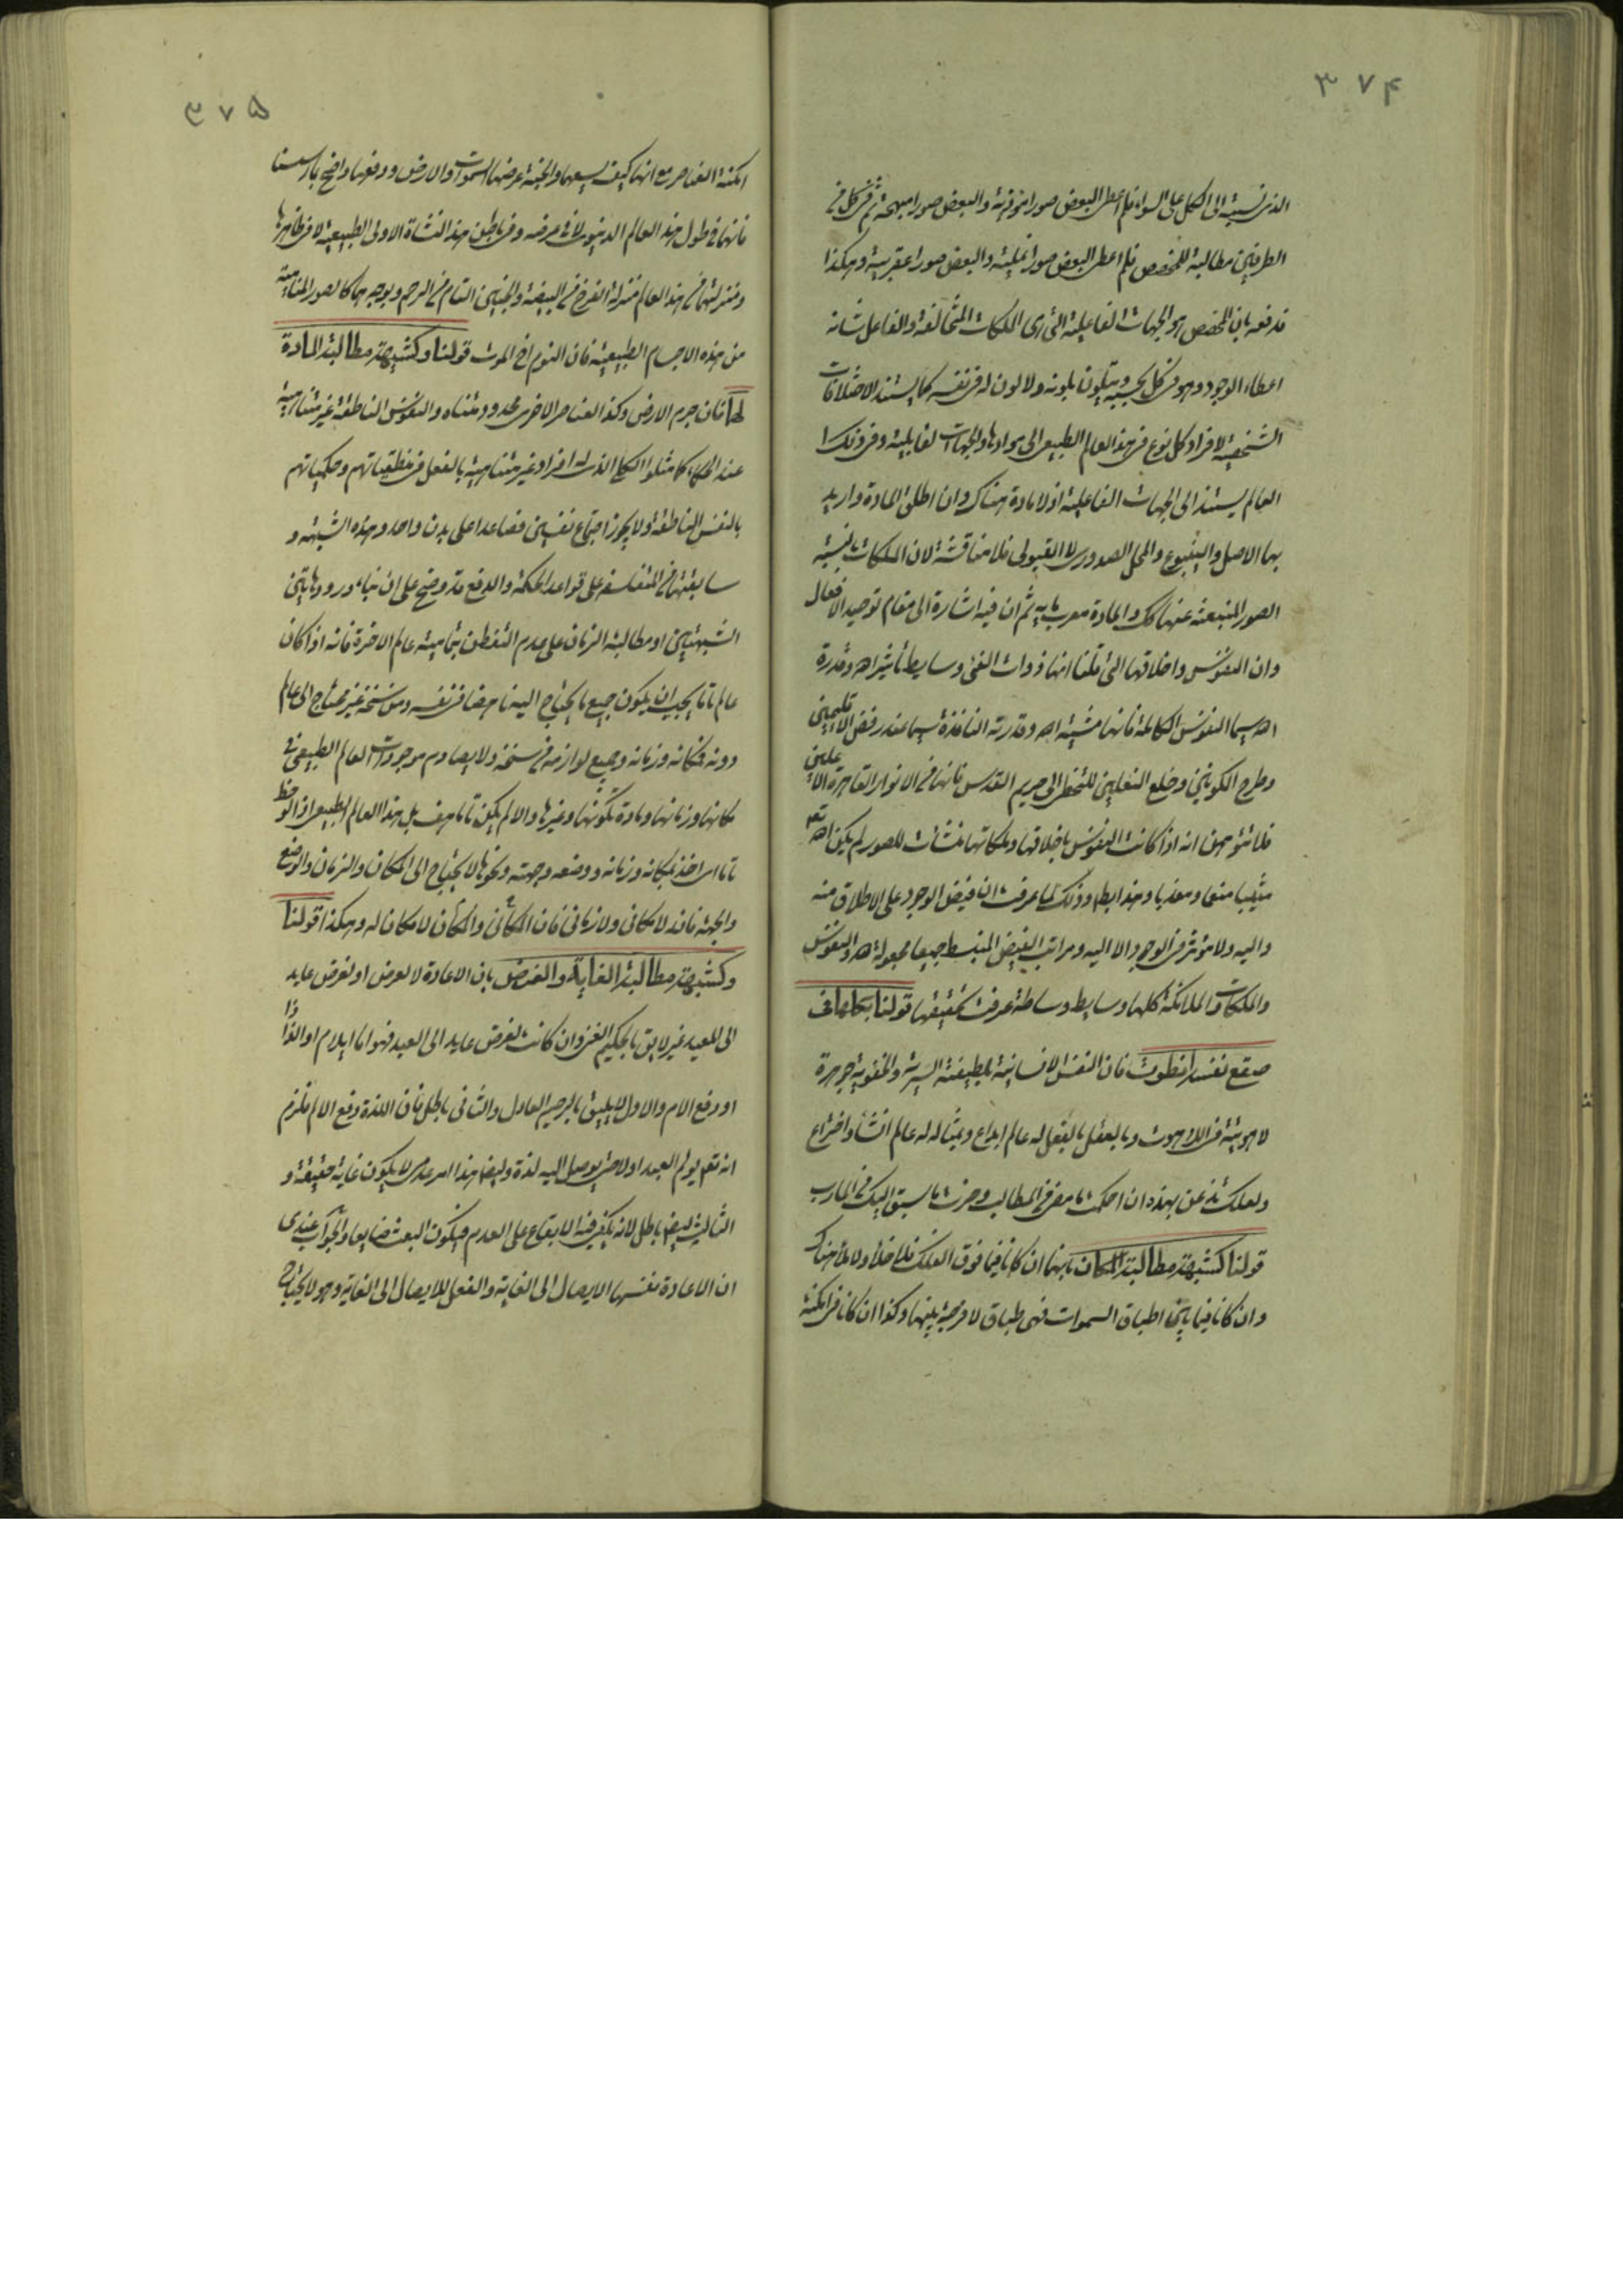 ٣٧۴
الذى نسبته الى الكل على السواء فلم اعطى البعض صورا موذية والبعض صورا مبهجة ثم فى كل من
الطرفين مطالبة المخصص فلم اعطى البعض صورا نملية والبعض صورا عقربية وهكذا
فدفعه بان المخصص هو الجهات الفاعلية التى هى الملكات المتخالفة والفاعل شانه
اعطاء الوجود وهو فى كل بحسبه ويتلون بلونه ولا لون له فى نفسه كما يستند الاختلافات
الشخصية لافراد كل نوع فى هذا العالم الطبيعى الى موادها والجهات القابلية وفى ذلك
العالم يستند الى الجهات الفاعلية اذ لا مادة هناك وان اطلق المادة واريد
بها الاصل والينبوع والمحل الصدورى لا القبولى فلا مناقشة لان الملكات بالنسبة
الصور المنبعثة عنها كك والمادة معرب مايه ثم ان فيه اشارة الى مقام توحيد الافعال
وان النفوس واخلاقها التى قلنا انها ذوات الفى وسايط تأثير الله وقدرة
الله سيما النفوس الكاملة فانها مشية الله وقدرته النافذة سيما عند رفض الاقليمين
وطرح الكونين وخلع النعلين للتخطى الى حريم القدس فانها من الانوار القاهرة الاعلين
فلا تتوهمن انه اذا كانت النفوس باخلاقها وملكاتها منشأت للصور لم يكن الله تعه
مثيبا منعما ومعذبا وهذا بط وذلك لما عرفت ان فيض الوجود على الاطلاق منه
واليه ولا مؤثر فى الوجود الا اليه ومراتب الفيض المنبسط جميعا مجعولة لله والنفوس
والملكات والملائكة كلها وسايط وساطة عرفت تحقيقها قولنا بكلها فى
صقع نفسه انطوت فان النفس الانسانية بلطيفته السرية والخفوية جوهرة
لاهوتية فى اللاهوت وبالعقل بالفعل له عالم ابداع وبمثاله له عالم انشأ واختراع
ولعلك تذعن بهذه ان احكمت ما مضى فى المطالب وحزت ما سبق اليك فى المارب
قولنا كشبهة مطالبة المكان بانهما ان كانا فيما فوق الفلك فلا خلأ ولا ملأ هناك
وان كانا فيما بين اطباق السموات فهى طباق لا فرجة بينها وكذا ان كانا فى امكنة
٣٧۵
امكنة العناصر مع انها كيف يسعهما والجنة عرضها السموات والارض ودفعها واضح بما رسمنا
فانهما فى طول هذا العالم الدنيوى لا فى عرضه وفى باطن هذا النشأة الاولى الطبيعية لا فى ظاهرها
ومنزلتهما فى هذا العالم منزلة الفرخ فى البيضة والجنين التام فى الرحم وبوجه هما كالصور المنامية
من هذه الاجسام الطبيعية فان النوم اخ الموت قولنا وكشبهة مطالبة المادة
لها فان جرم الارض وكذا العناصر الاخرى محدود متناه والنفوس الناطقة غير متناهية
عند الحكماء كما مثلوا الكلى الذى له افراد غير متناهية بالفعل فى منطقياتهم وحكمياتهم
بالنفس الناطقة ولا يجوز اجتماع نفسين فصاعدا على بدن واحد وهذه الشبهة و
سابقتها من المتفلسفة على قواعد الحكمة والدفع قد وضح على ان بناء ورود هاتين
الشبهتين او مطالبة الزمان على عدم التفطن بتمامية عالم الاخرة فانه اذا كان
عالما تاما يجب ان يكون جميع ما يحتاج اليه ناهضا فى نفسه ومن سنخه غير محتاج الى عالم
دونه فمكانه وزمانه وجميع لوازمه من سنخه ولا يصادم موجودات العالم الطبيعى فى
مكانها وزمانها ومادة تكونها وغيرها والا لم يكن تاما هف بل هذا العالم الطبيعى اذا لوحظ
تاما اى اخذ بمكانه وزمانه ووضعه وجهته ونحوها لا يحتاج الى المكان والزمان والوضع
والجهة فانه لا مكانى ولا زمانى فان المكانى والمكان لا مكان له وهكذا قولنا
وكشبهة مطالبة الغاية والغرض بان الاعادة لا لغرض او لغرض عايد
الى المعيد غير لايق بالحكيم الغنى وان كانت لغرض عايد الى العبد فهو اما ايلام او الذاذا
او رفع الام والاول لا يليق بالرحيم العادل والثانى باطل فان اللذة دفع الالم فلزم
انه تعه يولم العبد اولا حتى يوصل اليه لذة وايضا هذا امر عدمى لا يكون غاية حقيقة و
الثالث ايضا باطل لانه يكفى فيه الابقاء على العدم فيكون البعث ضايعا والجواب عندى
ان الاعادة نفسها الايصال الى الغاية والفعل للايصال الى الغاية وهو لا يحتاج